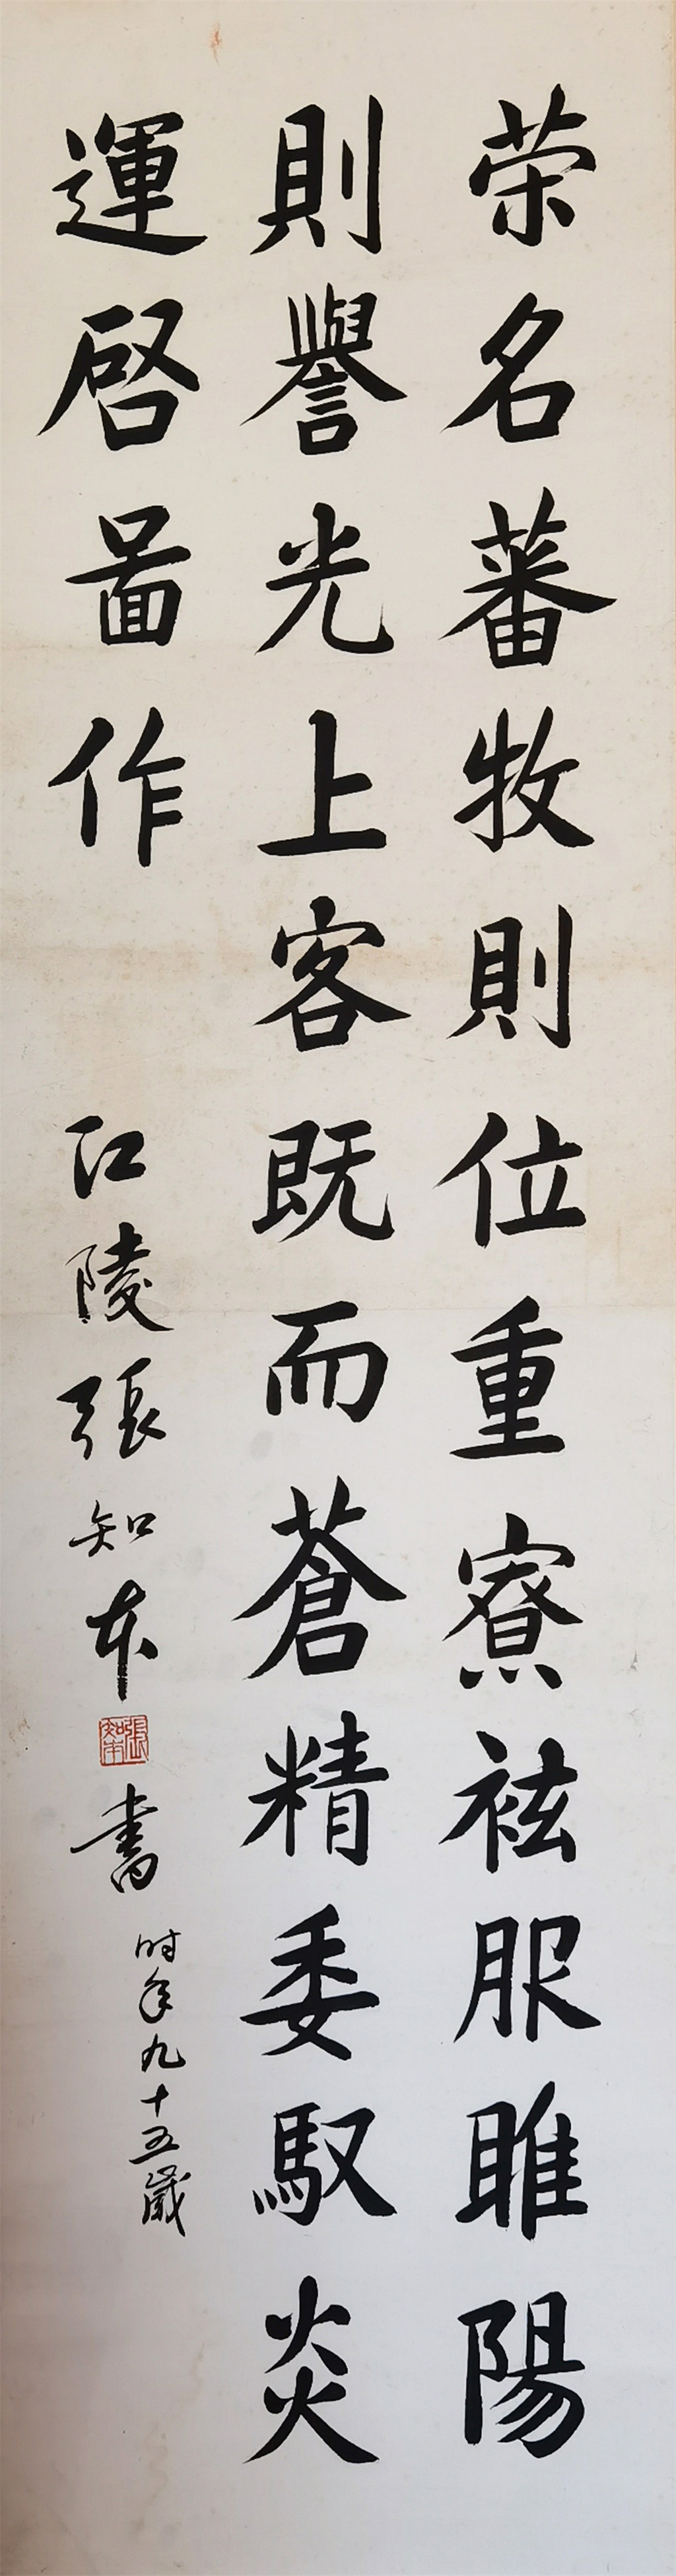 荣名蕃牧則位重寮袨服睢陽
則譽光上客既而蒼精委馭炎
運啓啚作
江陵張知本書
張知本
時年九十五歲